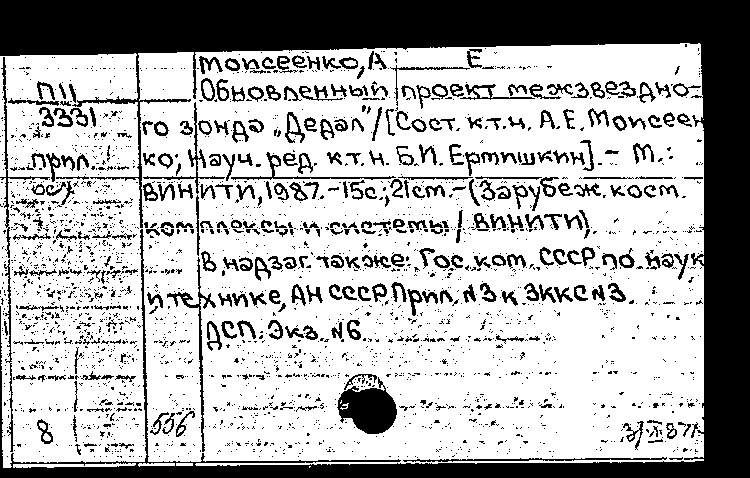 Моисеенко, А Е
П11 Обновленный проект межзвездно-
3331 го зонда „Дедал"/[Сост. к.т.н. А.Е. Моисеен
прил. ко; Науч. ред. к.т.н. Б.И. Ермишкин]. - М.:
ВИНИТИ, 1987. - 15с.; 21cm. - (Зарубеж. косм.
комплексы и системы / ВИНИТИ).
В надзаг. также: Гос. ком. СССР по наук
и технике, АН СССР. Прил. N3 к ЗККС N3.
ДСП. Экз. N6
8 556 31/VII 87г